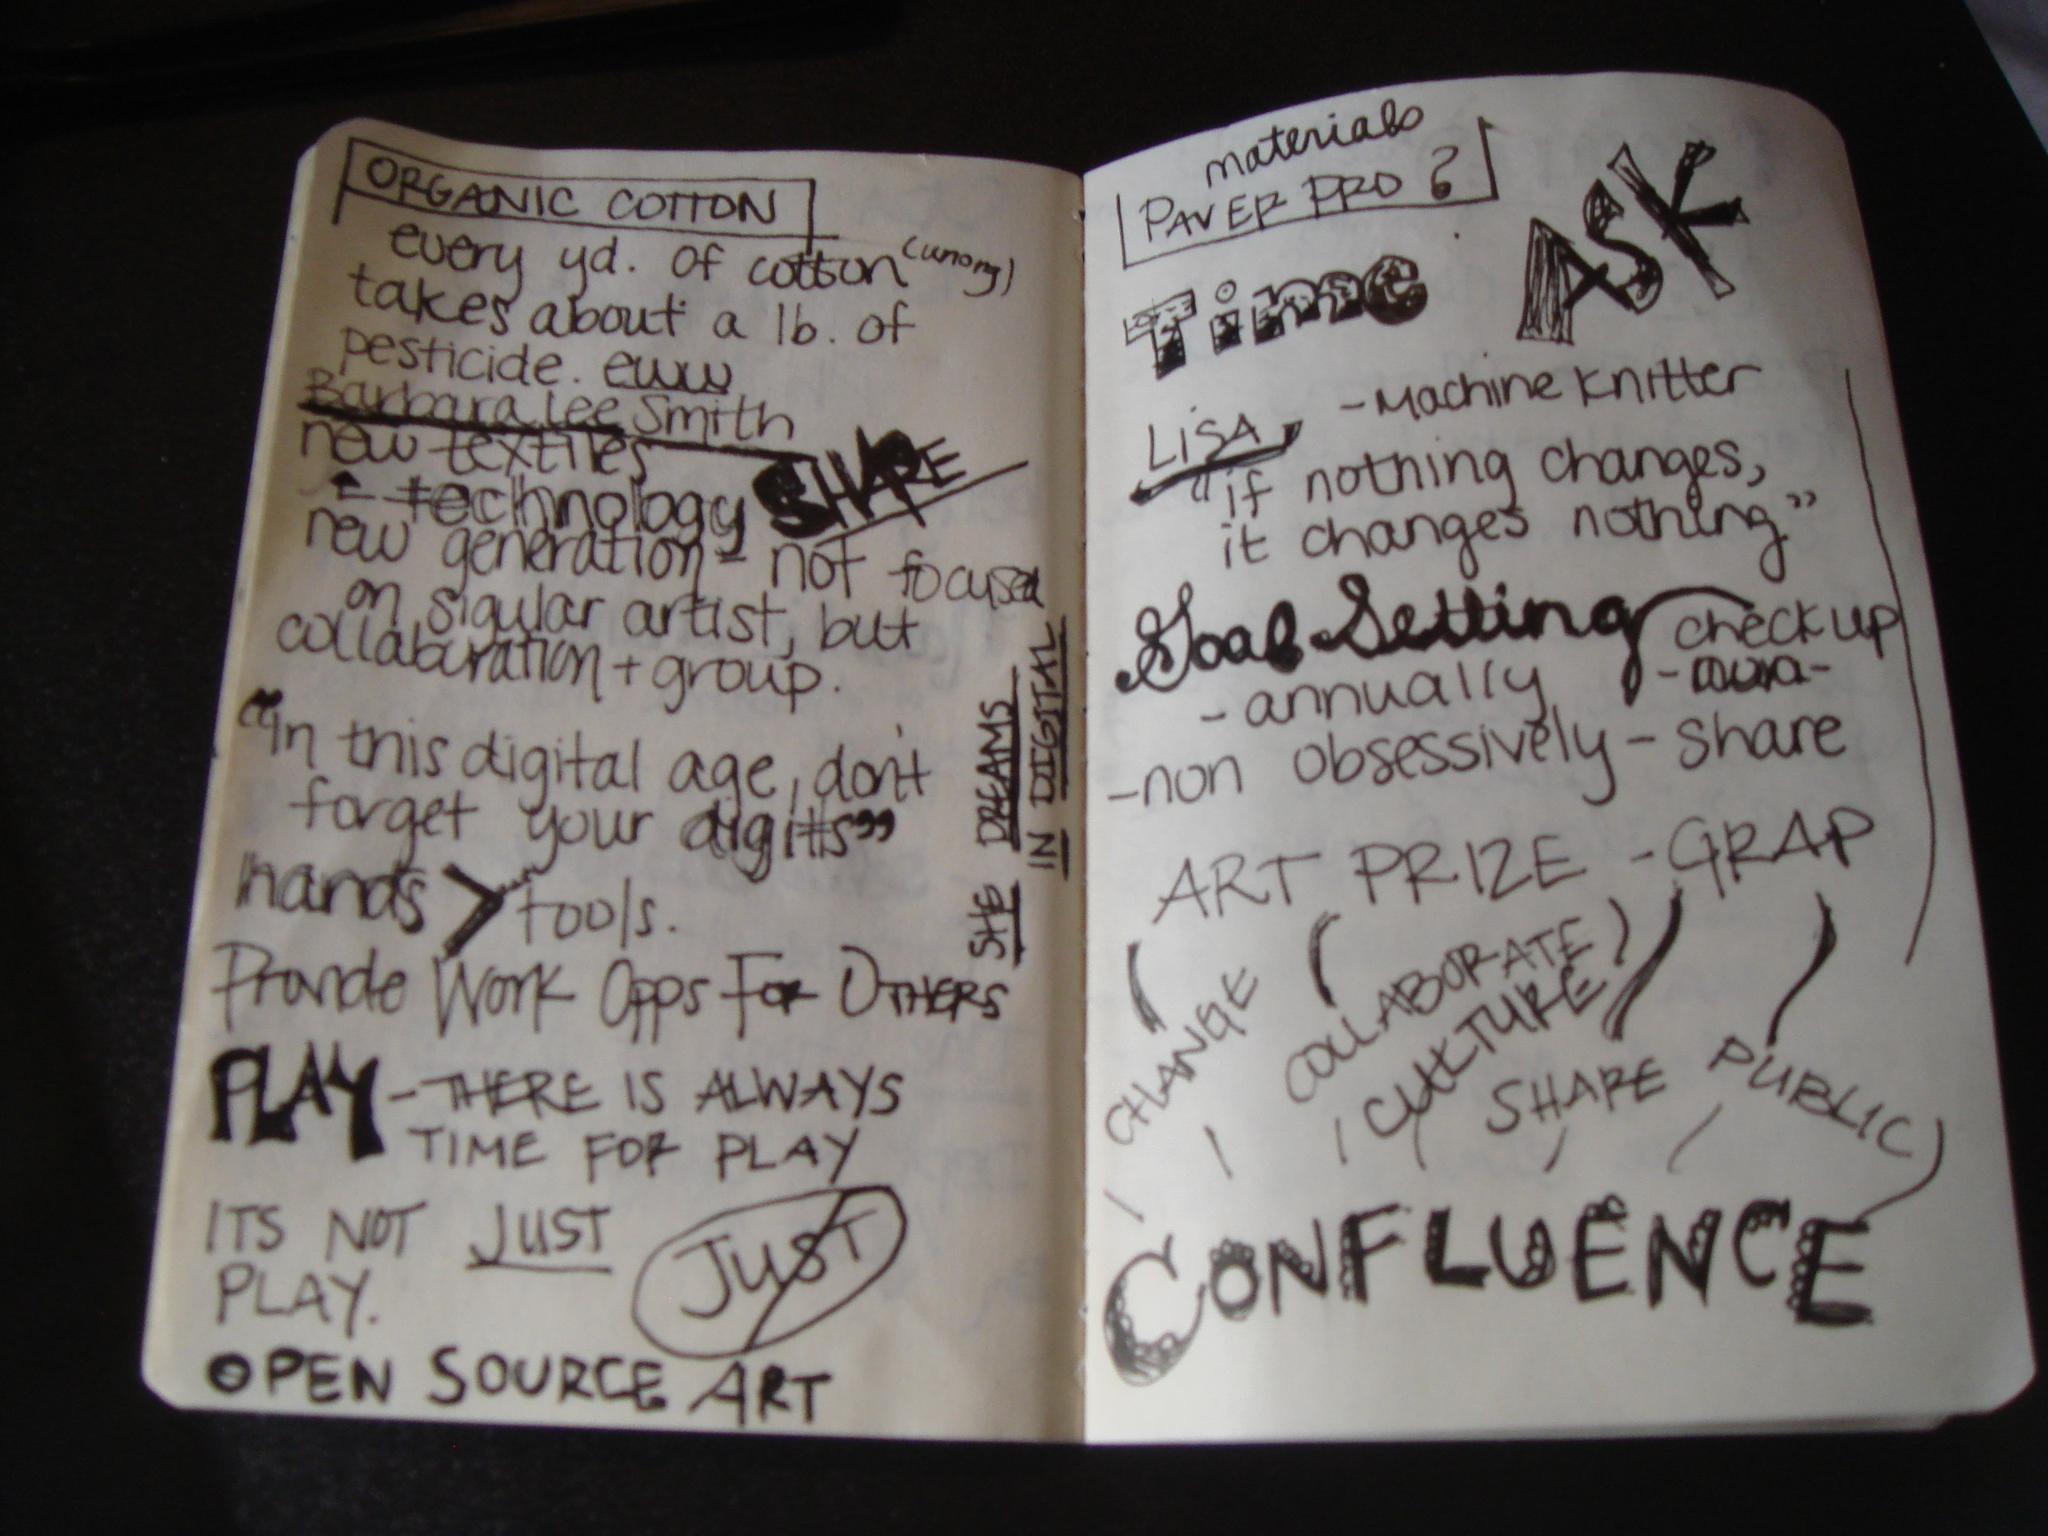 ORGANIC COTTON
every yd. of cotton (unorg)
takes about a lb. of
pesticide. eww
Barbara Lee Smith
new textiles
SHARE
technology
new generation - not focused
on sigular artist, but
collaburation + group.
"In this digital age, don't
forget your digits"
hands > tools.
SHE DREAMS
IN DIGITAL
Provide Work Opps For OTHERS
PLAY - THERE IS ALWAYS
TIME FOR PLAY
ITS NOT JUST
PLAY.
JUST
OPEN SOURCE ART
materials
PAVER PRO ?
ASK
Time
LISA - Machine Knitter
"if nothing changes,
it changes nothing"
Goal Setting check up
- annually
- non obsessively - share
ART PRIZE - GRAP
CHANGE
COLLABORATE
CULTURE
SHARE
PUBLIC
CONFLUENCE